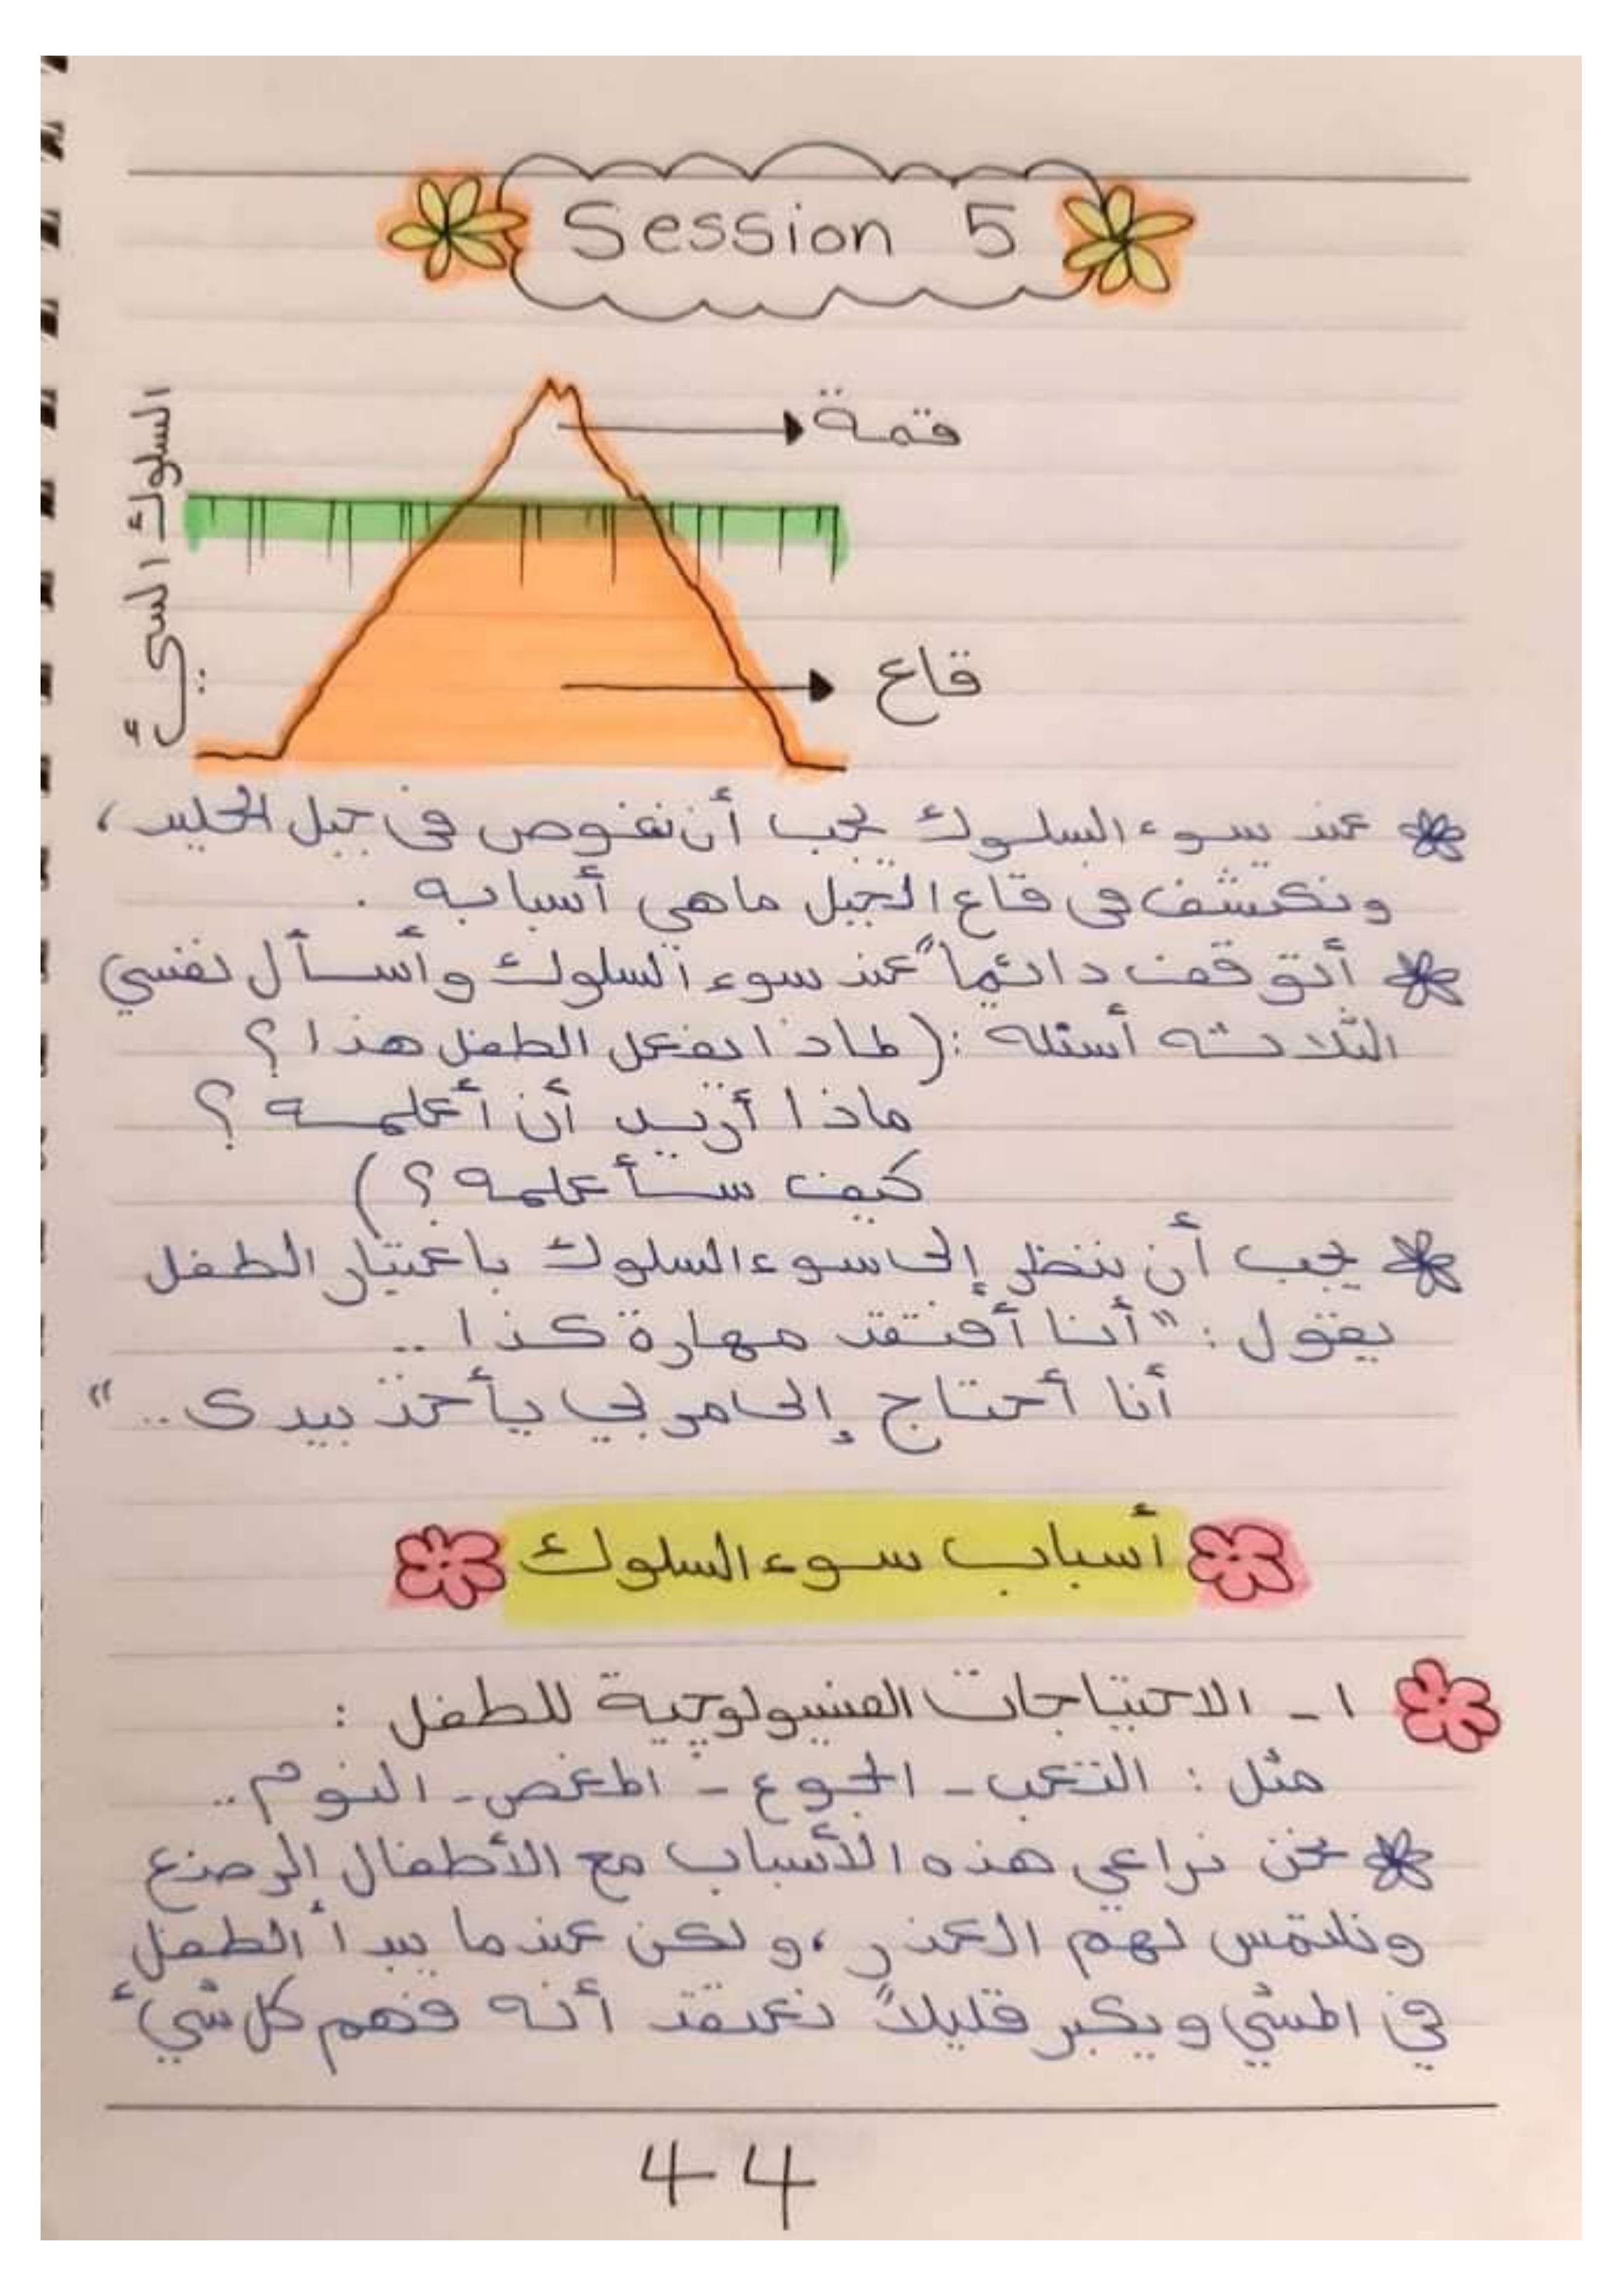 Session 5
قمة
السلوك السيئ
قاع
عند سوء السلوك يجب أن نغوص في جبل الجليد،
ونكتشف في قاع الجبل ماهي أسبابه .
أتوقف دائماً عند سوء السلوك وأسأل نفسي
الثلاثه أسئله : (لماذا يفعل الطفل هذا ؟
ماذا أريد أن أعلمه ؟
كيف سأعلمه ؟)
يجب أن ننظر إلى سوء السلوك باعتبار الطفل
يقول : "أنا أفتقد مهارة كذا ..
أنا أحتاج إلى مربي يأخذ بيدى .. "
أسباب سوء السلوك
١ - الاحتياجات الفسيولوجية للطفل :
مثل : التعب - الجوع - المغص - النوم ..
نحن نراعي هذه الأسباب مع الأطفال الرضع
ونلتمس لهم العذر ، ولكن عندما يبدأ الطفل
في المشي ويكبر قليلاً نعتقد أنه فهم كل شيء
44